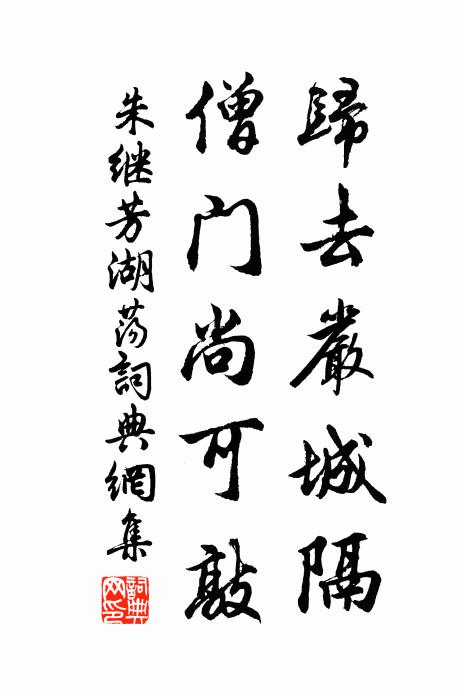 歸去嚴城隔
僧门尚可敲
朱继芳湖荡詞典網集
詞典网印